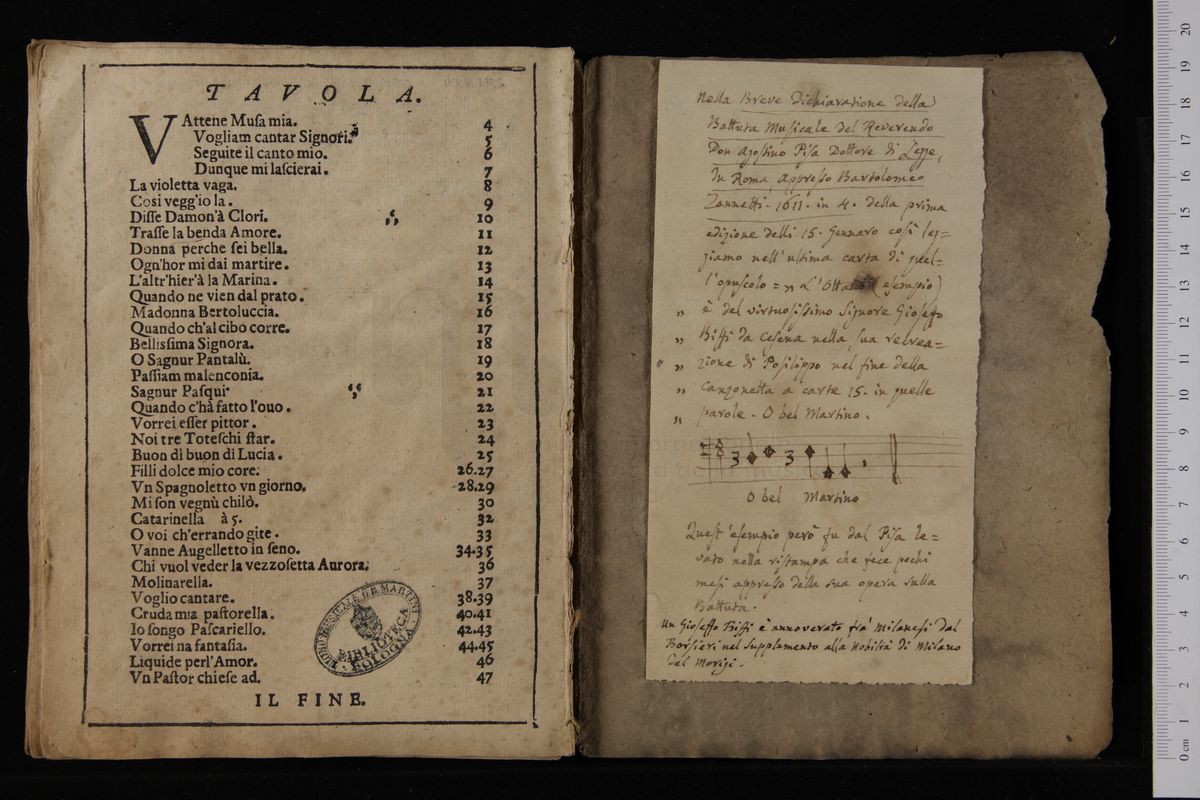 TAVOLA.
VAttene Muſa mia. 4
Vogliam cantar Signori. 5
Seguite il canto mio. 6
Dunque mi laſcierai. 7
La violetta vaga. 8
Coſi vegg'io la. 9
Diſſe Damon'à Clori. 10
Traſſe la benda Amore. 11
Donna perche ſei bella. 12
Ogn'hor mi dai martire. 13
L'altr'hier'à la Marina. 14
Quando ne vien dal prato. 15
Madonna Bertoluccia. 16
Quando ch'al cibo corre. 17
Belliſſima Signora. 18
O Sagnur Pantalù. 19
Paſſiam malenconia. 20
Sagnur Paſqui 21
Quando c'hà fatto l'ouo. 22
Vorrei eſſer pittor. 23
Noi tre Toteſchi ſtar. 24
Buon dì buon dì Lucia. 25
Filli dolce mio core. 26.27
Vn Spagnoletto vn giorno. 28.29
Mi ſon vegnù chilò. 30
Catarinella à 5. 32
O voi ch'errando gite. 33
Vanne Augelletto in ſeno. 34.35
Chi vuol veder la vezzoſetta Aurora. 36
Molinarella. 37
Voglio cantare. 38.39
Cruda mia paſtorella. 40.41
Io ſongo Paſcariello. 42.43
Vorrei na fantaſia. 44.45
Liquide perl'Amor. 46
Vn Paſtor chieſe ad. 47
IL FINE.
LICEO MUSICALE MARTINI
BIBLIOTECA
BOLOGNA
Nella Breve Dichiarazione della
Battuta Musicale del Reverendo
Don Agostino Pisa Dottore di Legge,
In Roma, appresso Bartolomeo
Zannetti - 1611. in 4. della prima
edizione delli 15. Gennaro così leg=
giamo nell'ultima carta di quel=
l'opuscolo = „ L'Ottavo (esempio)
„ è del virtuosissimo Signore Gioseffo
„ Biffi da Cesena nella sua recrea=
„ zione di Posilippo nel fine della
„ Canzonetta a carte 15. in quelle
„ parole - O bel Martino.
3 3
O bel Martino
Quest'esempio però fu dal Pisa le=
vato nella ristampa che fece pochi
mesi appresso della sua opera sulla
Battuta.
Un Gioseffo Biffi è annoverato frà Milanesi dal
Borsieri nel supplemento alla Nobiltà di Milano
del Morigi.
20
19
18
17
16
15
14
13
12
11
10
9
8
7
6
5
4
3
2
1
0 cm